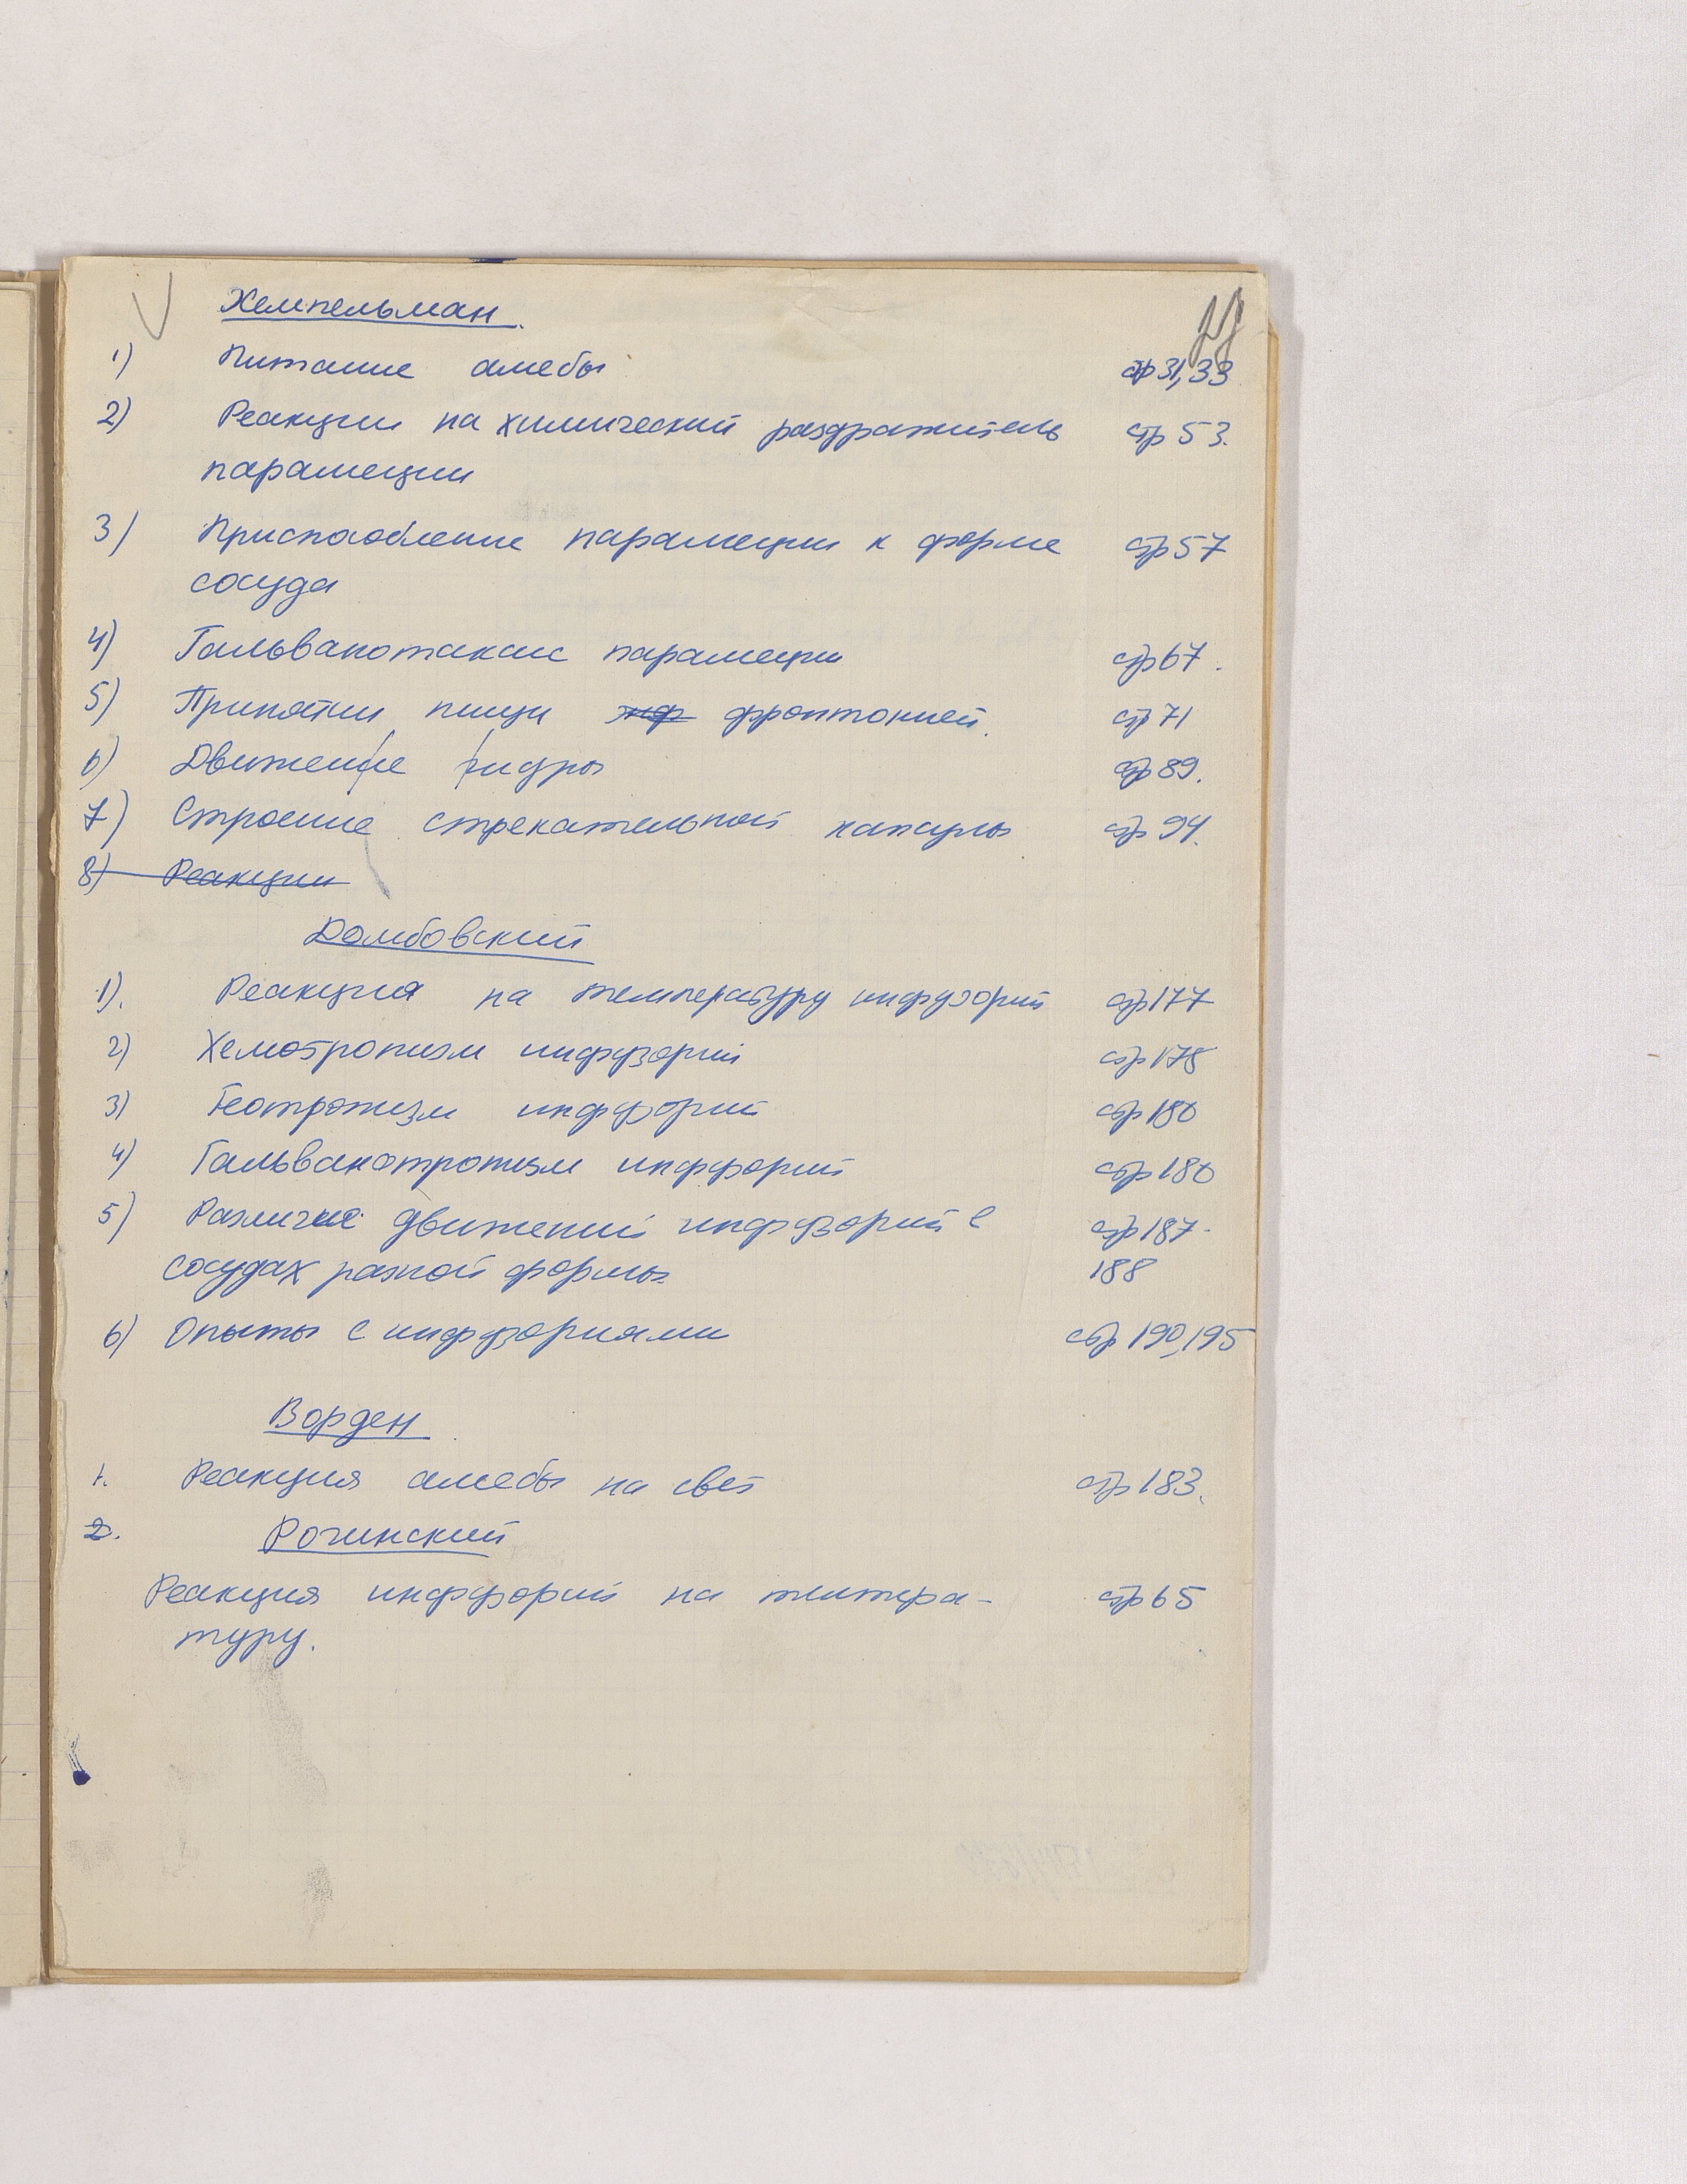 Хемпельман.
1) Питание амебы стр 31,33
2) Реакции на химический раздражитель стр 53.
парамеции
3) Приспособление парамеции к форме стр 57
сосуда
4) Гальванотаксис парамеции стр 67.
5) Принятии пищи фронтонией. стр 71
6) Движение гидры стр 89.
7) Строение стрекательной капсулы стр 94.
8) Реакции
Домбовский
1). Реакция на температуру инфузорий стр 177
2) Хемотропизм инфузорий стр 178
3) Геотропизм инфузорий стр 180
4) Гальванотропизм инфузорий стр 180
5) Различие движений инфузорий в стр 187-
сосудах разной формы 188
6) Опыты с инфузориями стр 190,195
Ворден
1. Реакция амебы на свет стр 183.
2. Рогинский
Реакция инфузорий на темпера- стр 65
туру.